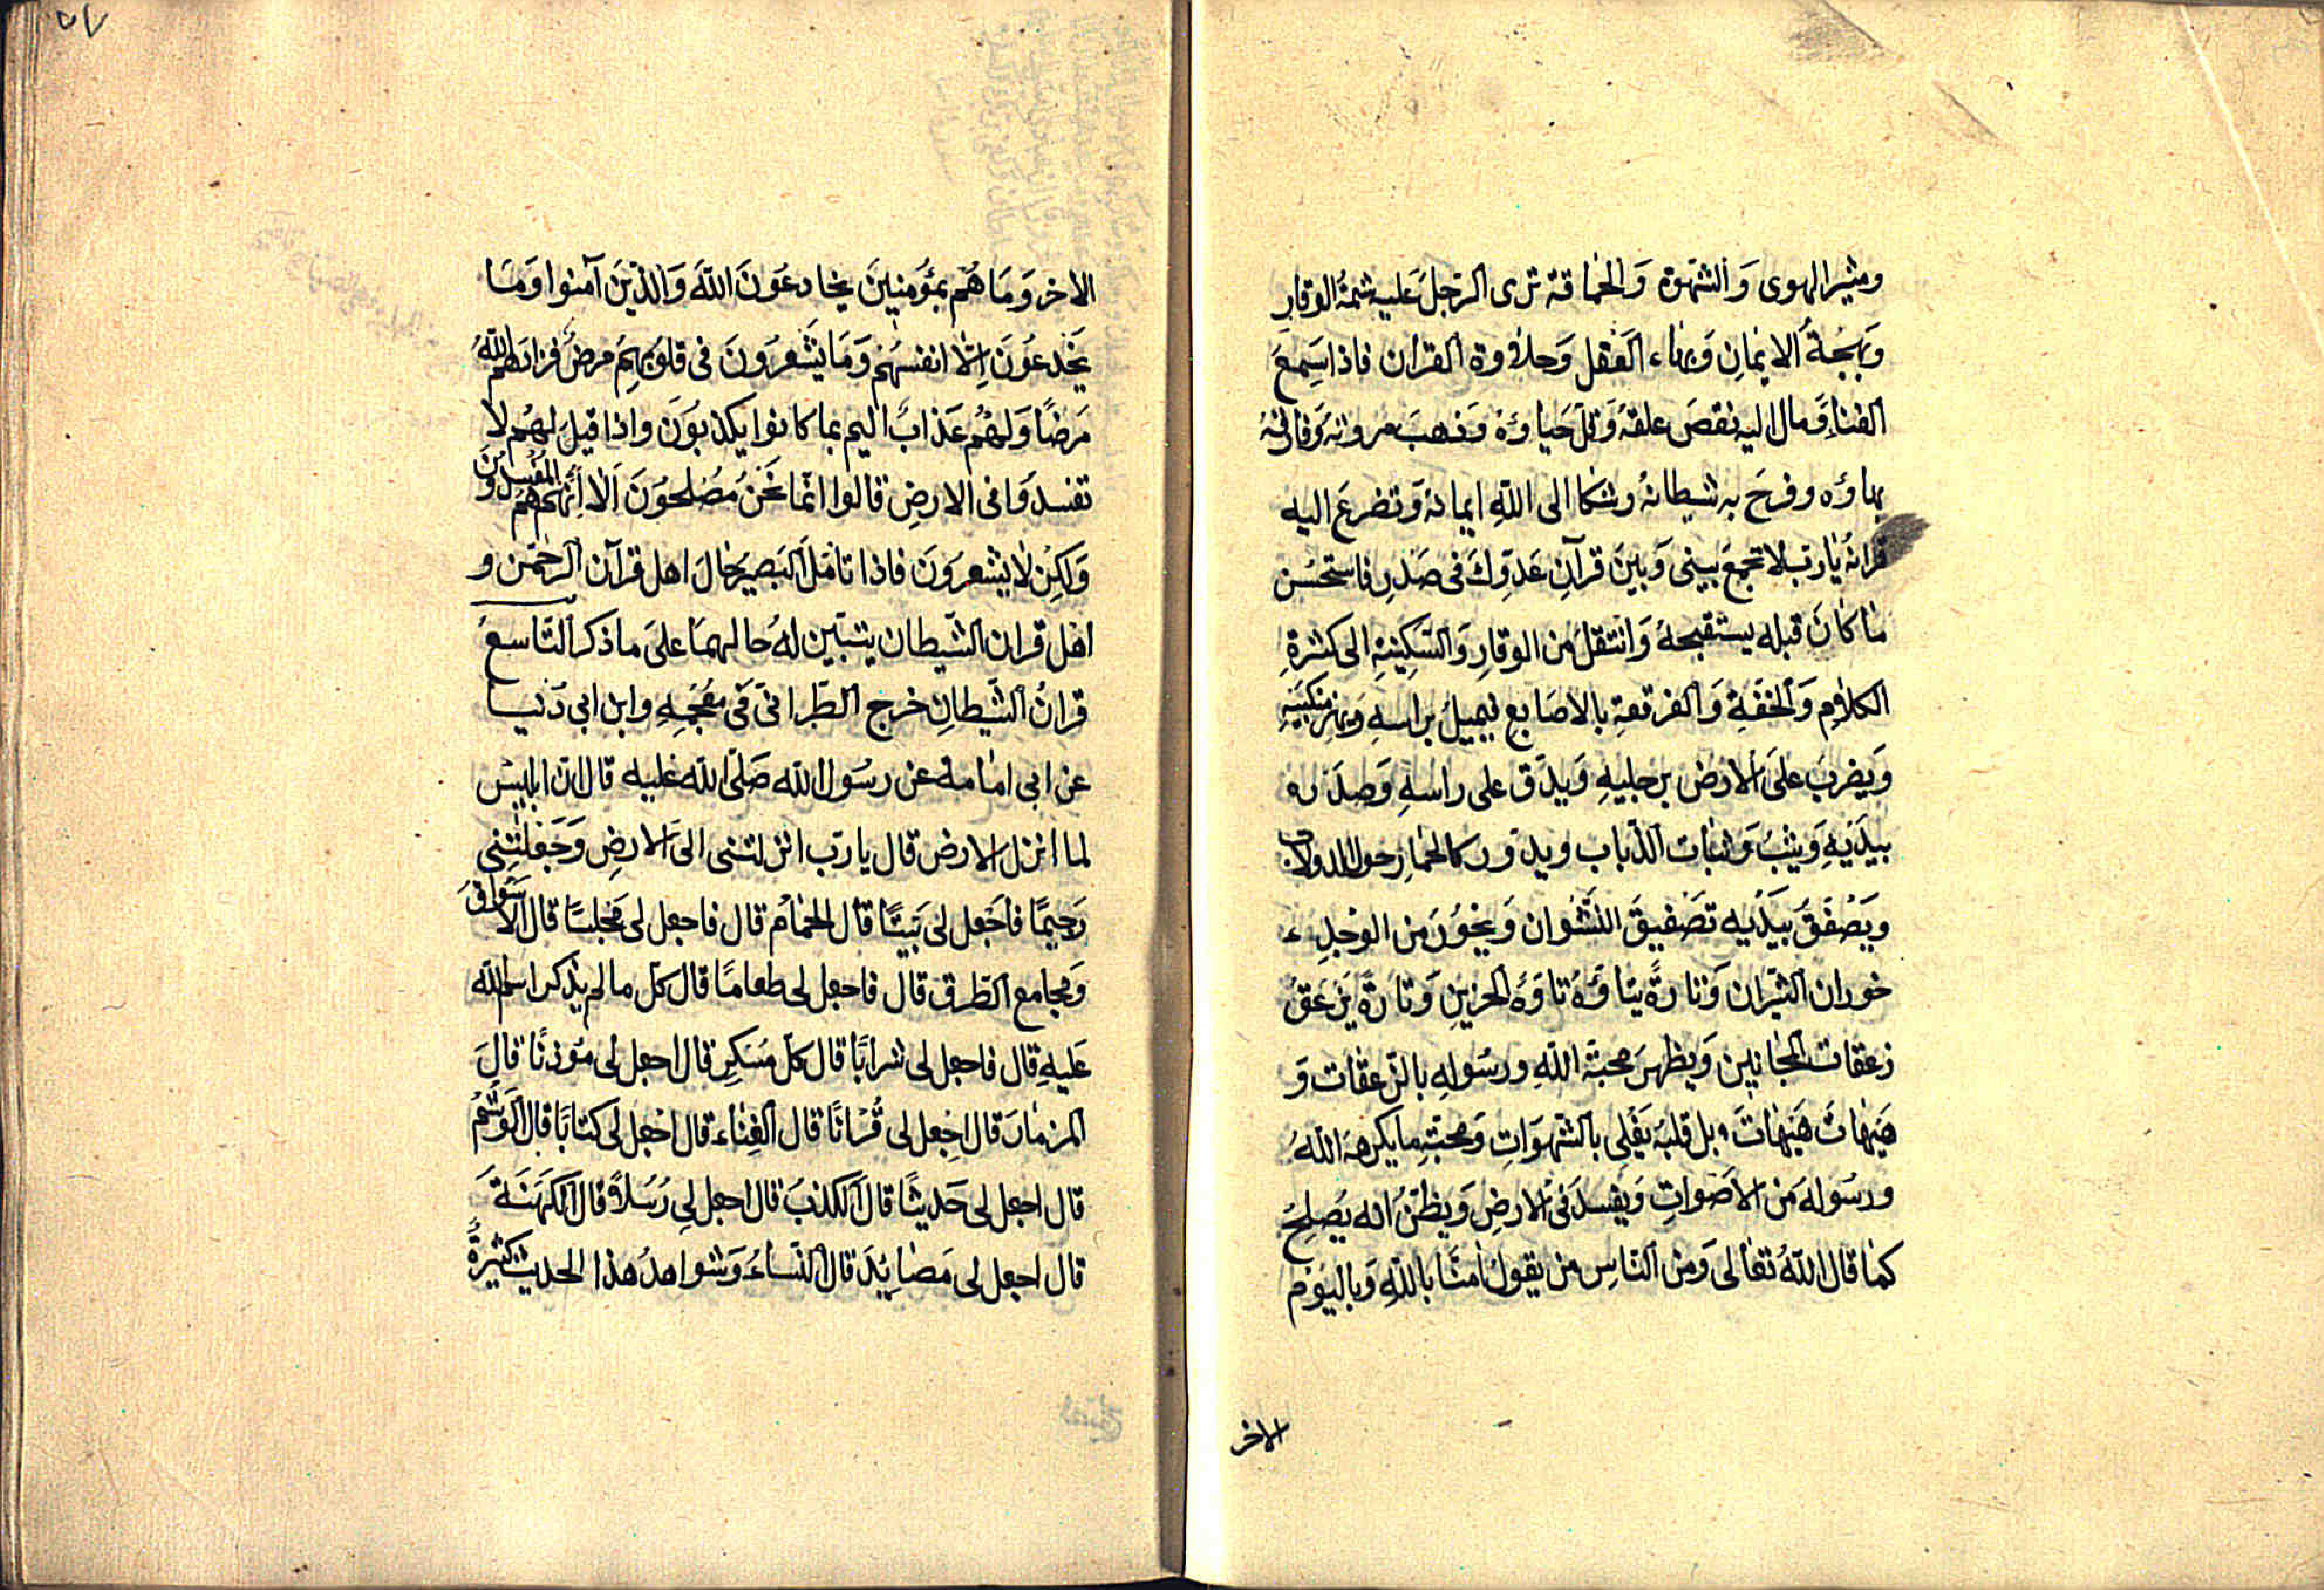 ومثير الهوى وَالشهوة وَالحماقة ترى الرجلَ عليه شيمةُ الوقارِ
وبَهجةُ الايمانِ وَبهاء العَقل وَحلاوة القران فاذا سَمِعَ
الغناءَ وَمال اليه نقصَ عقلهُ وَقلّ حَياؤهُ وَذهبَ مروتهُ وَفارقهُ
بهاؤه وفرحَ به شيطانهُ وشكا الى اللهِ ايمانهُ وَتضرعَ اليه
قرانهُ يا ربّ لا تجمعَ بينى وَبينَ قرآنِ عَدوّك فى صَدرِ فاستحسَن
ما كانَ قبله يستقبحهُ وَانتقلَ من الوقارِ وَالسّكينةِ الى كثرةِ
الكلامِ وَالخفّةِ وَالفرقعةِ بالاصَابع فيميلُ براسهِ وَيهز منكبيَهِ
وَيضربَ علىَ الارض برجليهِ وَيدق على راسهِ وَصدره
بيدَيهِ وَيثِبُ وَثبات الذّباب ويدَور كالحمارِ حول الدولاب
ويَصْفقَ بيَديه تصَفيقَ النّشوان وَيخُورَ من الوَجدِ
خوران الثيران وَتارةً يتأوّهُ تاوّه الحزينِ وَتارةً يزعَقُ
زعقات المجانين وَيظهرَ محبّة اللهِ ورسُولهِ بالزعقات وَ
هَيهاتَ هَيهاتَ بل قلبهَ يَغلى بالشهوَاتِ وَمحبّةِ ما يكرههَ اللهُ
ورسُولهَ من الاصَواتِ وَيفسدَ فى الارضِ وَيظنّ انه يصَلحُ
كما قال اللهُ تعالىَ وَمن النّاسِ من يقولُ امنّا باللهِ وَباليَوم
الاخر
٥٧
الاخر وَمَا هُم بمؤمنينَ يخادعُونَ اللهَ وَالذينَ آمنوا وَمَا
يَخدعُونَ اِلّا انفسَهُم وَمَا يشَعُرونَ فى قلوَبهِمَ مرضٌ فزادَهُم اللهُ
مَرضًا وَلهُم عَذابٌ اليم بما كانوا يكذبوَن واذا قيلَ لهُم لا
تفسدوَا فى الارضِ قالوا انما نَحنُ مُصَلحوَنَ اَلا اِنّهُم هُمُ المُفسِدُونَ
وَلكِن لا يشعروَنَ فاذا تامّل البَصيرَ حَالَ اهل قرآن الرحمن و
اهل قران الشّيطان يتبّين لهُ حالهمَا علىَ ما ذكر التّاسعَ
قرانُ الشّيطانِ خرج الطّبرانىّ فى مُعجَمِهِ وابن ابى دَنيا
عن ابى امامة عن رسُول الله صَلّى الله عليه قال انّ ابليسَ
لما انزل الارض قال يا ربّ انزلتنى الىَ الارضِ وَجَعَلتَنى
رَجيمًا فاجَعل لى بَيتًا قال الحمامُ قال فاجعل لى مَجلسًا قال الاسَواقَ
وَمجامع الطّرق قال فاجعل لى طعامًا قال كلّ ما لم يذكر اسم الله
عَليهِ قال فاجعل لى شرابًا قال كلّ مسَكِر قال اجعل لى مَوذنًا قالَ
المزمارَ قال اجِعل لى قُرْانًا قال الغِناء قال اجَعل لى كتابًا قال الوَشَمُ
قال اجعل لى حَديثًا قال الكذبَ قال اجعل لِى رُسُلاً قال الكَهَنَةَ
قال اجعل لى مَصَايِدَ قال النّساءُ وَشواهدُ هذا الحديث كثيرةٌ